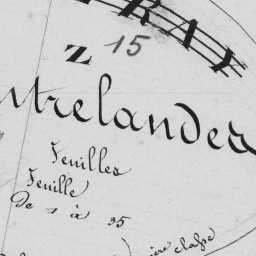 Z 15
utrelander
Feuilles
Feuille
De 1 à 35
ière classe